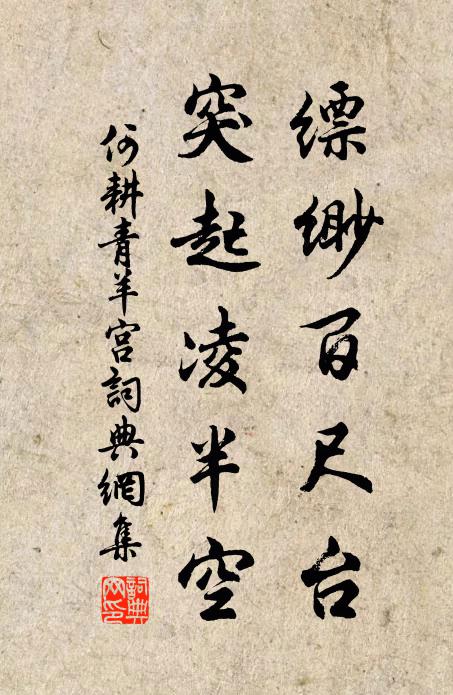 缥缈百尺台
突起凌半空
何耕青羊宫詞典網集
詞典網印